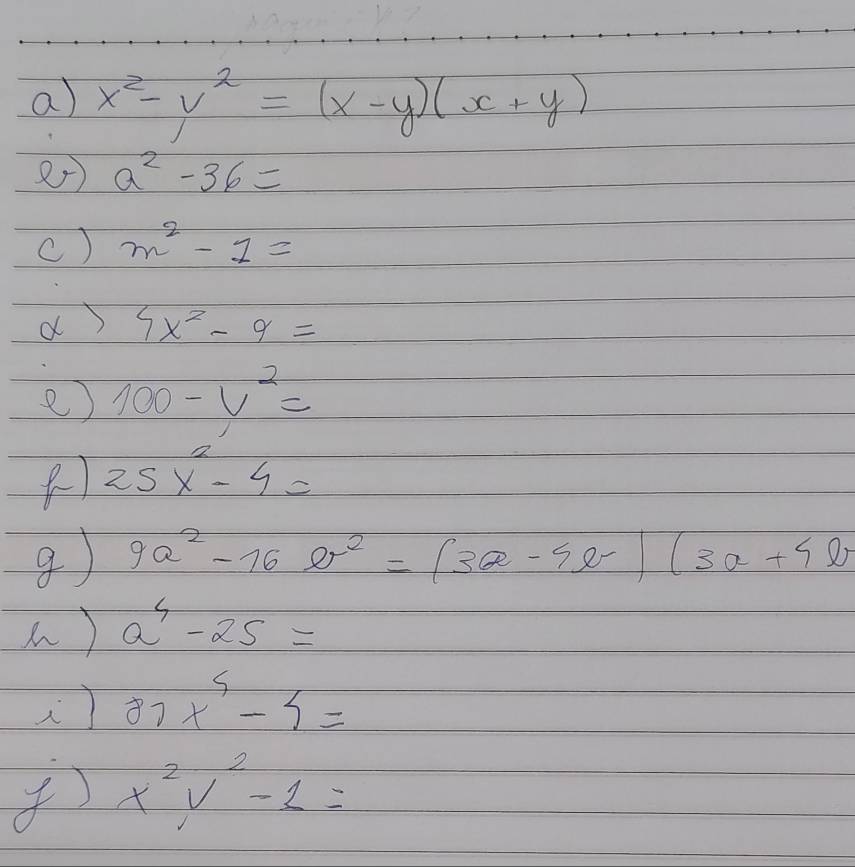 a) x² - y² = (x - y)(x + y)
b) a² - 36 =
c) m² - 1 =
d) 4x² - 9 =
e) 100 - y² =
f) 25x² - 4 =
g) 9a² - 16b² = (3a - 4b)(3a + 4b
h) a⁴ - 25 =
i) 81x⁴ - 4 =
j) x²y² - 1 =